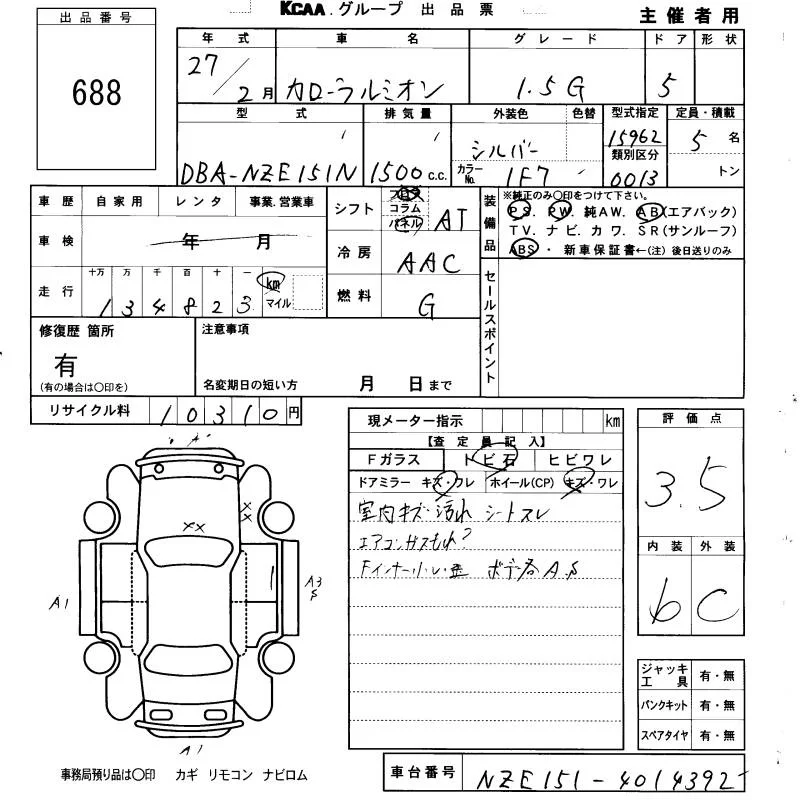 KCAA.グループ 出品票
主催者用
出品番号
688
年式 車名 グレード ドア 形状
27/2月 カローラルミオン 1.5G 5
型式 排気量 外装色 色替 型式指定 定員・積載
DBA-NZE151N 1500c.c. シルバー 15962 5名
カラーNo. 1F7 類別区分 0013 トン
車歴 自家用 レンタ 事業.営業車
シフト フロア コラム パネル AT
装備品
※純正のみ〇印をつけて下さい。
PS. PW. 純AW. AB(エアバック)
TV. ナビ. カワ. SR(サンルーフ)
ABS・新車保証書←(注)後日送りのみ
車検 年 月
冷房 AAC
走行 十万 万 千 百 十 一
134823 km マイル
燃料 G
セールスポイント
修復歴 箇所
有
(有の場合は〇印を)
注意事項
名変期日の短い方 月 日まで
リサイクル料 10310円
現メーター指示 km
【査定員記入】
Fガラス トビ石 ヒビワレ
ドアミラー キズ・ワレ ホイール(CP) キズ・ワレ
室内キズ・汚れ シートスレ
エアコンガスもれ?
Fインナー小レ歪 ボデー各A.S
評価点
3.5
内装 外装
6 C
A1
XX
XX
A1
A3
S
A1
ジャッキ工具 有・無
パンクキット 有・無
スペアタイヤ 有・無
事務局預り品は〇印 カギ リモコン ナビロム
車台番号 NZE151-4014392